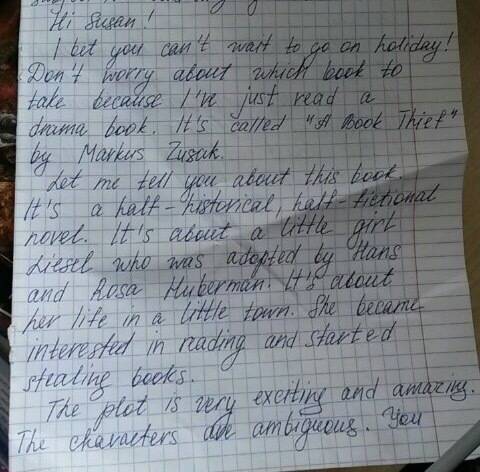 Hi Susan!
I bet you can't wait to go on holiday!
Don't worry about which book to
take because I've just read a
drama book. It's called "A Book Thief"
by Markus Zusak.
Let me tell you about this book.
It's a half-historical, half-fictional
novel. It's about a little girl
Liesel who was adopted by Hans
and Rosa Huberman. It's about
her life in a little town. She became
interested in reading and started
stealing books.
The plot is very exciting and amazing.
The characters are ambiguous. You